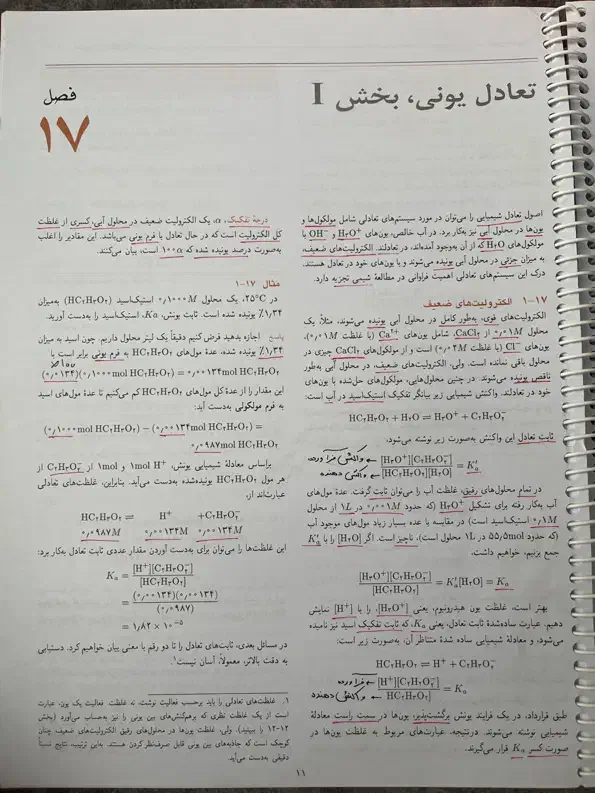 تعادل یونی، بخش I
فصل
۱۷
اصول تعادل شیمیایی را می‌توان در مورد سیستم‌های تعادلی شامل مولکول‌ها و
یون‌ها در محلول آبی نیز به‌کار برد. در آب خالص، یون‌های H۳O⁺ و OH⁻ با
مولکول‌های H۲O که از آن به‌وجود آمده‌اند، در تعادلند. الکترولیت‌های ضعیف،
به میزان جزئی در محلول آبی یونیده می‌شوند و با یون‌های خود در تعادل هستند.
درک این سیستم‌های تعادلی اهمیت فراوانی در مطالعهٔ شیمی تجزیه دارد.
۱۷-۱ الکترولیت‌های ضعیف
الکترولیت‌های قوی، به‌طور کامل در محلول آبی یونیده می‌شوند، مثلاً یک
محلول ۰٫۰۱M از CaCl۲، شامل یون‌های Ca²⁺ (با غلظت ۰٫۰۱M)،
یون‌های Cl⁻ (با غلظت ۰٫۰۲M) است و از مولکول‌های CaCl۲ چیزی در
محلول باقی نمانده است. ولی، الکترولیت‌های ضعیف، در محلول آبی به‌طور
ناقص یونیده می‌شوند. در چنین محلول‌هایی، مولکول‌های حل‌شده با یون‌های
خود در تعادلند. واکنش شیمیایی زیر بیانگر تفکیک استیک‌اسید در آب است:
HC۲H۳O۲ + H۲O ⇌ H۳O⁺ + C۲H۳O۲⁻
ثابت تعادل این واکنش به‌صورت زیر نوشته می‌شود.
[H۳O⁺][C۲H۳O۲⁻] / [HC۲H۳O۲][H۲O] = K′a
واکنش فرآورده
واکنش دهنده
در تمام محلول‌های رقیق، غلظت آب را می‌توان ثابت گرفت. عدهٔ مول‌های
آب به‌کار رفته برای تشکیل H۳O⁺ (که حدود ۰٫۰۰۱M در ۱L از محلول
۰٫۱M استیک‌اسید است) در مقایسه با عده بسیار زیاد مول‌های موجود آب
(که حدود ۵۵٫۵mol در ۱L محلول است)، ناچیز است. اگر [H۲O] را با K′a
جمع بزنیم، خواهیم داشت.
[H۳O⁺][C۲H۳O۲⁻] / [HC۲H۳O۲] = K′a[H۲O] = Ka
بهتر است، غلظت یون هیدرونیوم، یعنی [H۳O⁺]، را با [H⁺] نمایش
دهیم. عبارت ساده‌شدهٔ ثابت تعادل، یعنی Ka، که ثابت تفکیک اسید نیز نامیده
می‌شود، و معادلهٔ شیمیایی ساده شدهٔ متناظر آن، به‌صورت زیر است:
HC۲H۳O۲ ⇌ H⁺ + C۲H۳O۲⁻
[H⁺][C۲H۳O۲⁻] / [HC۲H۳O۲] = Ka
فرآورده
واکنش دهنده
طبق قرارداد، در یک فرایند یونش برگشت‌پذیر، یون‌ها در سمت راست معادلهٔ
شیمیایی نوشته می‌شوند. درنتیجه، عبارت‌های مربوط به غلظت یون‌ها در
صورت کسر Ka قرار می‌گیرند.
درجهٔ تفکیک، α، یک الکترولیت ضعیف در محلول آبی، کسری از غلظت
کل الکترولیت است که در حال تعادل با فرم یونی می‌باشد. این مقادیر را اغلب
به‌صورت درصد یونیده شده که ۱۰۰α است، بیان می‌کنند.
مثال ۱۷-۱
در ۲۵°C، یک محلول ۰٫۱۰۰۰M استیک‌اسید (HC۲H۳O۲) به‌میزان
۱٫۳۴٪ یونیده شده است. ثابت یونش، Ka، استیک‌اسید را به‌دست آورید.
پاسخ اجازه بدهید فرض کنیم دقیقاً یک لیتر محلول داریم. چون اسید به میزان
۱٫۳۴٪ یونیده شده، عدهٔ مول‌های HC۲H۳O۲ به فرم یونی برابر است با
(۰٫۰۱۳۴)(۰٫۱۰۰۰mol HC۲H۳O۲) = ۰٫۰۰۱۳۴mol HC۲H۳O۲
این مقدار را از عدهٔ کل مول‌های HC۲H۳O۲ کم می‌کنیم تا عدهٔ مول‌های اسید
به فرم مولکولی به‌دست آید:
(۰٫۱۰۰۰mol HC۲H۳O۲) − (۰٫۰۰۱۳۴mol HC۲H۳O۲) =
۰٫۰۹۸۷mol HC۲H۳O۲
براساس معادلهٔ شیمیایی یونش، ۱mol H⁺ و ۱mol از C۲H۳O۲⁻ از
هر مول HC۲H۳O۲ یونیده‌شده به‌دست می‌آید. بنابراین، غلظت‌های تعادلی
عبارت‌اند از:
HC۲H۳O۲ ⇌ H⁺ + C۲H۳O۲⁻
۰٫۰۹۸۷M ۰٫۰۰۱۳۴M ۰٫۰۰۱۳۴M
این غلظت‌ها را می‌توان برای به‌دست آوردن مقدار عددی ثابت تعادل به‌کار برد:
Ka = [H⁺][C۲H۳O۲⁻] / [HC۲H۳O۲]
= (۰٫۰۰۱۳۴)(۰٫۰۰۱۳۴) / (۰٫۰۹۸۷)
= ۱٫۸۲ × ۱۰⁻⁵
در مسائل بعدی، ثابت‌های تعادل را تا دو رقم با معنی بیان خواهیم کرد. دستیابی
به دقت بالاتر، معمولاً، آسان نیست۱.
۱. غلظت‌های تعادلی را باید برحسب فعالیت نوشت، نه غلظت. فعالیت یک یون، عبارت
است از یک غلظت نظری که برهم‌کنش‌های بین یونی را نیز به‌حساب می‌آورد (بخش
۱۲-۱۲ را ببینید). ولی، غلظت یون‌ها در محلول‌های رقیق الکترولیت‌های ضعیف چنان
کوچک است که جاذبه‌های بین یونی قابل صرف‌نظر کردن هستند. به‌این ترتیب، نتایج نسبتاً
دقیقی به‌دست می‌آید.
۱۱